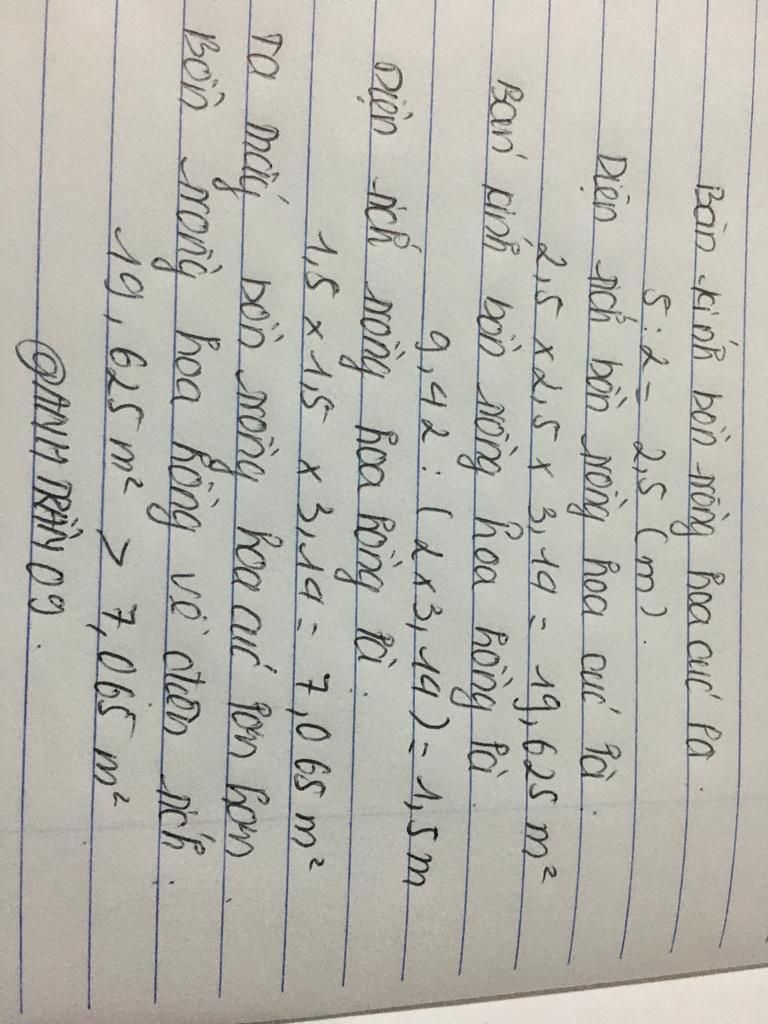 Bán kính bồn trồng hoa cúc là.
5 : 2 = 2,5 (m).
Diện tích bồn trồng hoa cúc là.
2,5 x 2,5 x 3,14 = 19,625 m²
Bán kính bồn trồng hoa hồng là
9,42 : (2 x 3,14) = 1,5 m
Diện tích trồng hoa hồng là.
1,5 x 1,5 x 3,14 = 7,065 m²
Ta thấy bồn trồng hoa cúc lớn hơn
Bồn trồng hoa hồng về diện tích.
19,625 m² > 7,065 m²
@ANH TRẦN 09.